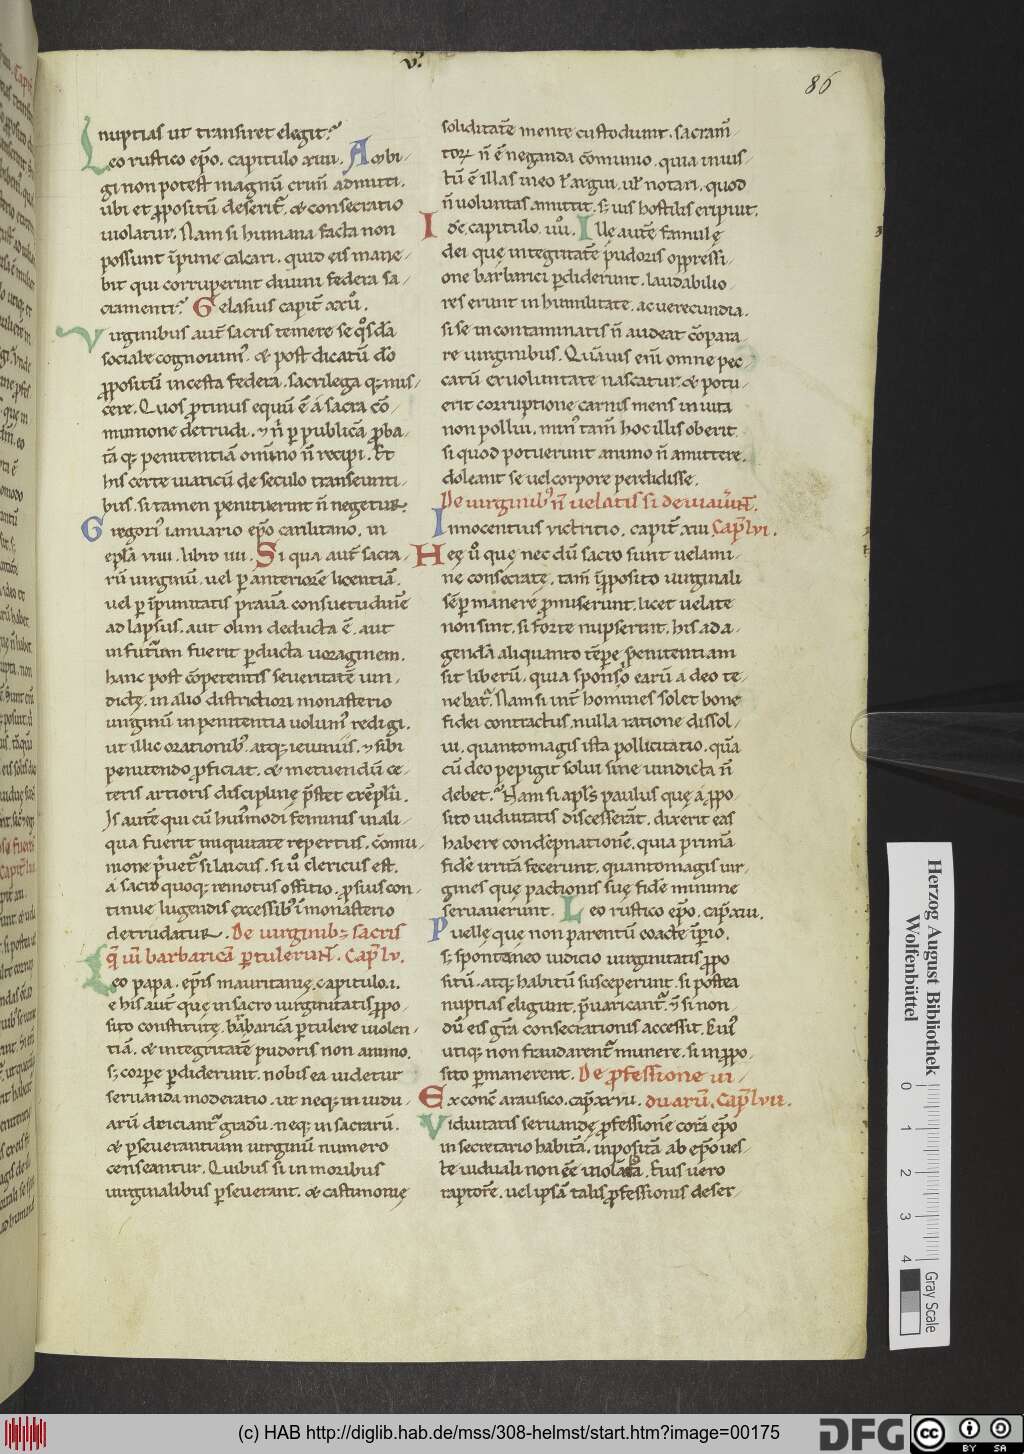 v.
86
nuptias ut transiret elegit.
Leo rustico ep̅o. capitulo xiiii. Ambi-
gi non potest magnū crim̅ admitti.
ubi et ꝓpositū deserit̅. & consecratio
uiolatur. Nam si humana facta non
possunt īpune calcari. quid eis mane-
bit qui corruperint diuini federa sa-
cramenti? Gelasius capit̅ xxu̅.
Virginibus aut̅ sacris temere se qͦsdā
sociale cognouim᷒. & post dicatū d̅o
ꝓpositū incesta federa. sacrilega q; mis-
cere. Quos ꝓtinus equū ē a sacra cō-
munione detrudi. ⁊ n̅ ꝑ publicā ꝓba-
tā q; penitentiā omnino n̅ recipi. Et
his certe uiaticū de seculo transeunti-
bus. si tamen penituerint n̅ negetur.
Gregori᷒ ianuario ep̅o caralitano. in
epl̅a viiii. libro iiii. Si qua aut̅ sacra-
rū uirginū. uel ꝑ anteriorē licentiā.
uel ꝑ īpunitatis prauā consuetudinē
ad lapsus. aut olim deducta ē. aut
in futurū fuerit ꝑducta uoraginem.
hanc post cōpetentis seueritatē uin-
dictę. in alio districtiori monasterio
uirginū in penitentia uolum᷒ redigi.
ut illic orationib᷒. atq; ieiuniis. ⁊ sibi
penitendo ꝓficiat. & metuendū ce-
teris artioris disciplinę p̅stet exēplū.
Is autē qui cū hui᷒modi feminis in ali-
qua fuerit iniquitate repertus. cōmu-
nione p̅uet̅ si laicus. si u̅ clericus est.
a sacro quoq; remotus offitio. ꝓ suis con-
tinue lugendis excessib᷒ ī monasterio
detrudatur. De uirginib; sacris
q̅ ui barbaricā ꝑtulerunt. Cap̅l lv.
Leo papa. ep̅is mauritanię. capitulo. i.
e his aut̅ quę in sacro uirginitatis ꝓpo-
sito constitutę. barbaricā ꝑtulere uiolen-
tiā. & integritatē pudoris non animo.
s; corpe ꝑdiderunt. nobis ea uidetur
seruanda moderatio. ut neq; in uidu-
arū deiciant̅ gradū. neq; in sacrarū.
& ꝑseuerantium uirginū numero
censeantur. Quibus si in moribus
uirginalibus ꝑseuerant. & castimonię
soliditatē mente custodiunt. sacram̅-
torꝝ n̅ ē neganda cōmunio. quia inius-
tū ē illas in eo l̅ argui. ul̅ notari. quod
n̅ uoluntas amittit. s; uis hostilis eripuit.
Idē. capitulo. iiii. Ille autē famulę
dei quę integritatē pudoris oppressi-
one barbarici ꝑdiderunt. laudabilio-
res erunt in humilitate. ac uerecundia.
si se incontaminatis n̅ audeat cōpara-
re uirginibus. Quāuis eni̅ omne pec-
catū ex uoluntate nascatur. & potu-
erit corruptione carnis mens inuita
non pollui. min᷒ tam̅ hoc illis oberit
si quod potuerunt animo n̅ amittere.
doleant se uel corpore perdidisse.
De uirginib᷒ n̅ uelatis si deuiauer̅t.
Innocentius victritio. capit̅ xiii Cap̅l lvi.
Heę u̅ quę nec dū sacro sunt uelami-
ne consecratę. tam̅ ī ꝓposito uirginali
sēꝑ manere ꝓmiserunt. licet uelatę
non sint. si forte nupserint. his ad a-
gendā aliquanto tēpe penitentiam
sit liberū. quia sponso earū a deo te-
nebat̅. Nam si int̅ homines solet bonę
fidei contractus. nulla ratione dissol-
ui. quantomagis ista pollicitatio. quā
cū deo pepigit solui sine uindicta n̅
debet. Nam si apl̅s paulus quę a ꝓpo-
sito uiduitatis discesserāt. dixerit eas
habere condēpnationē. quia primā
fidē irritā fecerunt. quantomagis uir-
gines quę pactionis suę fidē minime
seruauerunt. Leo rustico ep̅o. cap̅ xiii.
Puellę quę non parentū coactę īperio.
s; spontaneo iudicio uirginitatis ꝓpo
sitū. atq; habitū susceperunt. si postea
nuptias eligunt. p̅uaricant̅. ⁊ si non-
dū eis gr̅a consecrationis accessit. Eui᷒
utiq; non fraudarent̅ munere. si in ꝓpo-
sito ꝑmanerent. De ꝓfessione ui-
Ex conc̅ arausico. cap̅ xxvii. duarū. Cap̅l lvii.
Viduitatis seruandę ꝓfessionē corā ep̅o
in secretario habitā. inposita ab ep̅o ues-
te uiduali non ēē uiolāda. Eius uero
raptorē. uel ipsā talis ꝓfessionis deser-
Herzog August Bibliothek
Wolfenbüttel
0 1 2 3 4
Gray Scale
(c) HAB http://diglib.hab.de/mss/308-helmst/start.htm?image=00175
DFG
cc BY SA